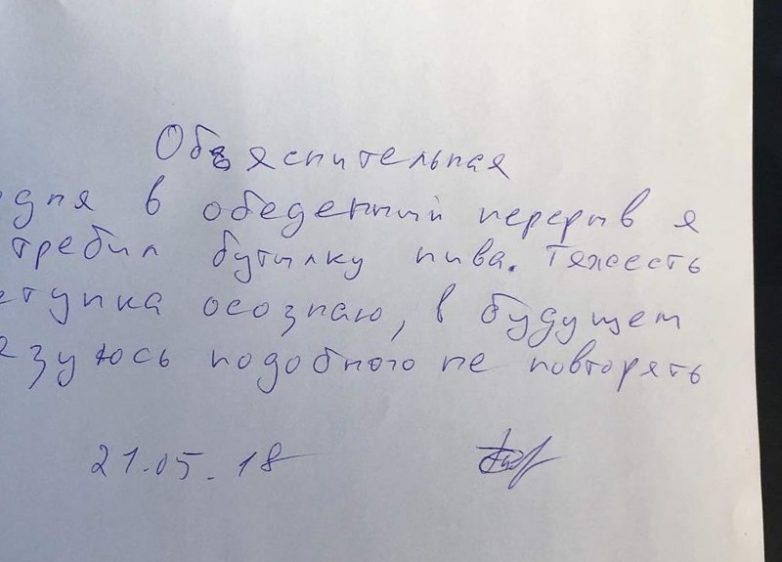 Объяснительная
дня в обеденный перерыв я
требил бутылку пива. Тяжесть
ступка осознаю, в будущем
язуюсь подобного не повторять
21.05.18